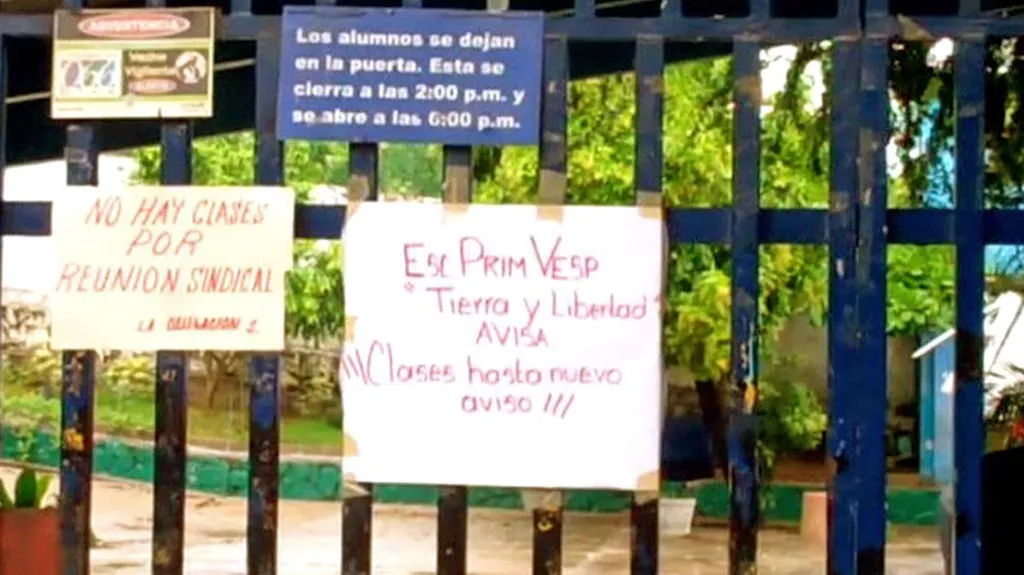 ADVERTENCIA
Vecino
Vigilante
ALERTA
Los alumnos se dejan
en la puerta. Esta se
cierra a las 2:00 p.m. y
se abre a las 6:00 p.m.
NO HAY CLASES
POR
REUNION SINDICAL
LA DELEGACION
ESC PRIM VESP
"Tierra y Libertad"
AVISA
¡¡¡Clases hasta nuevo
aviso !!!